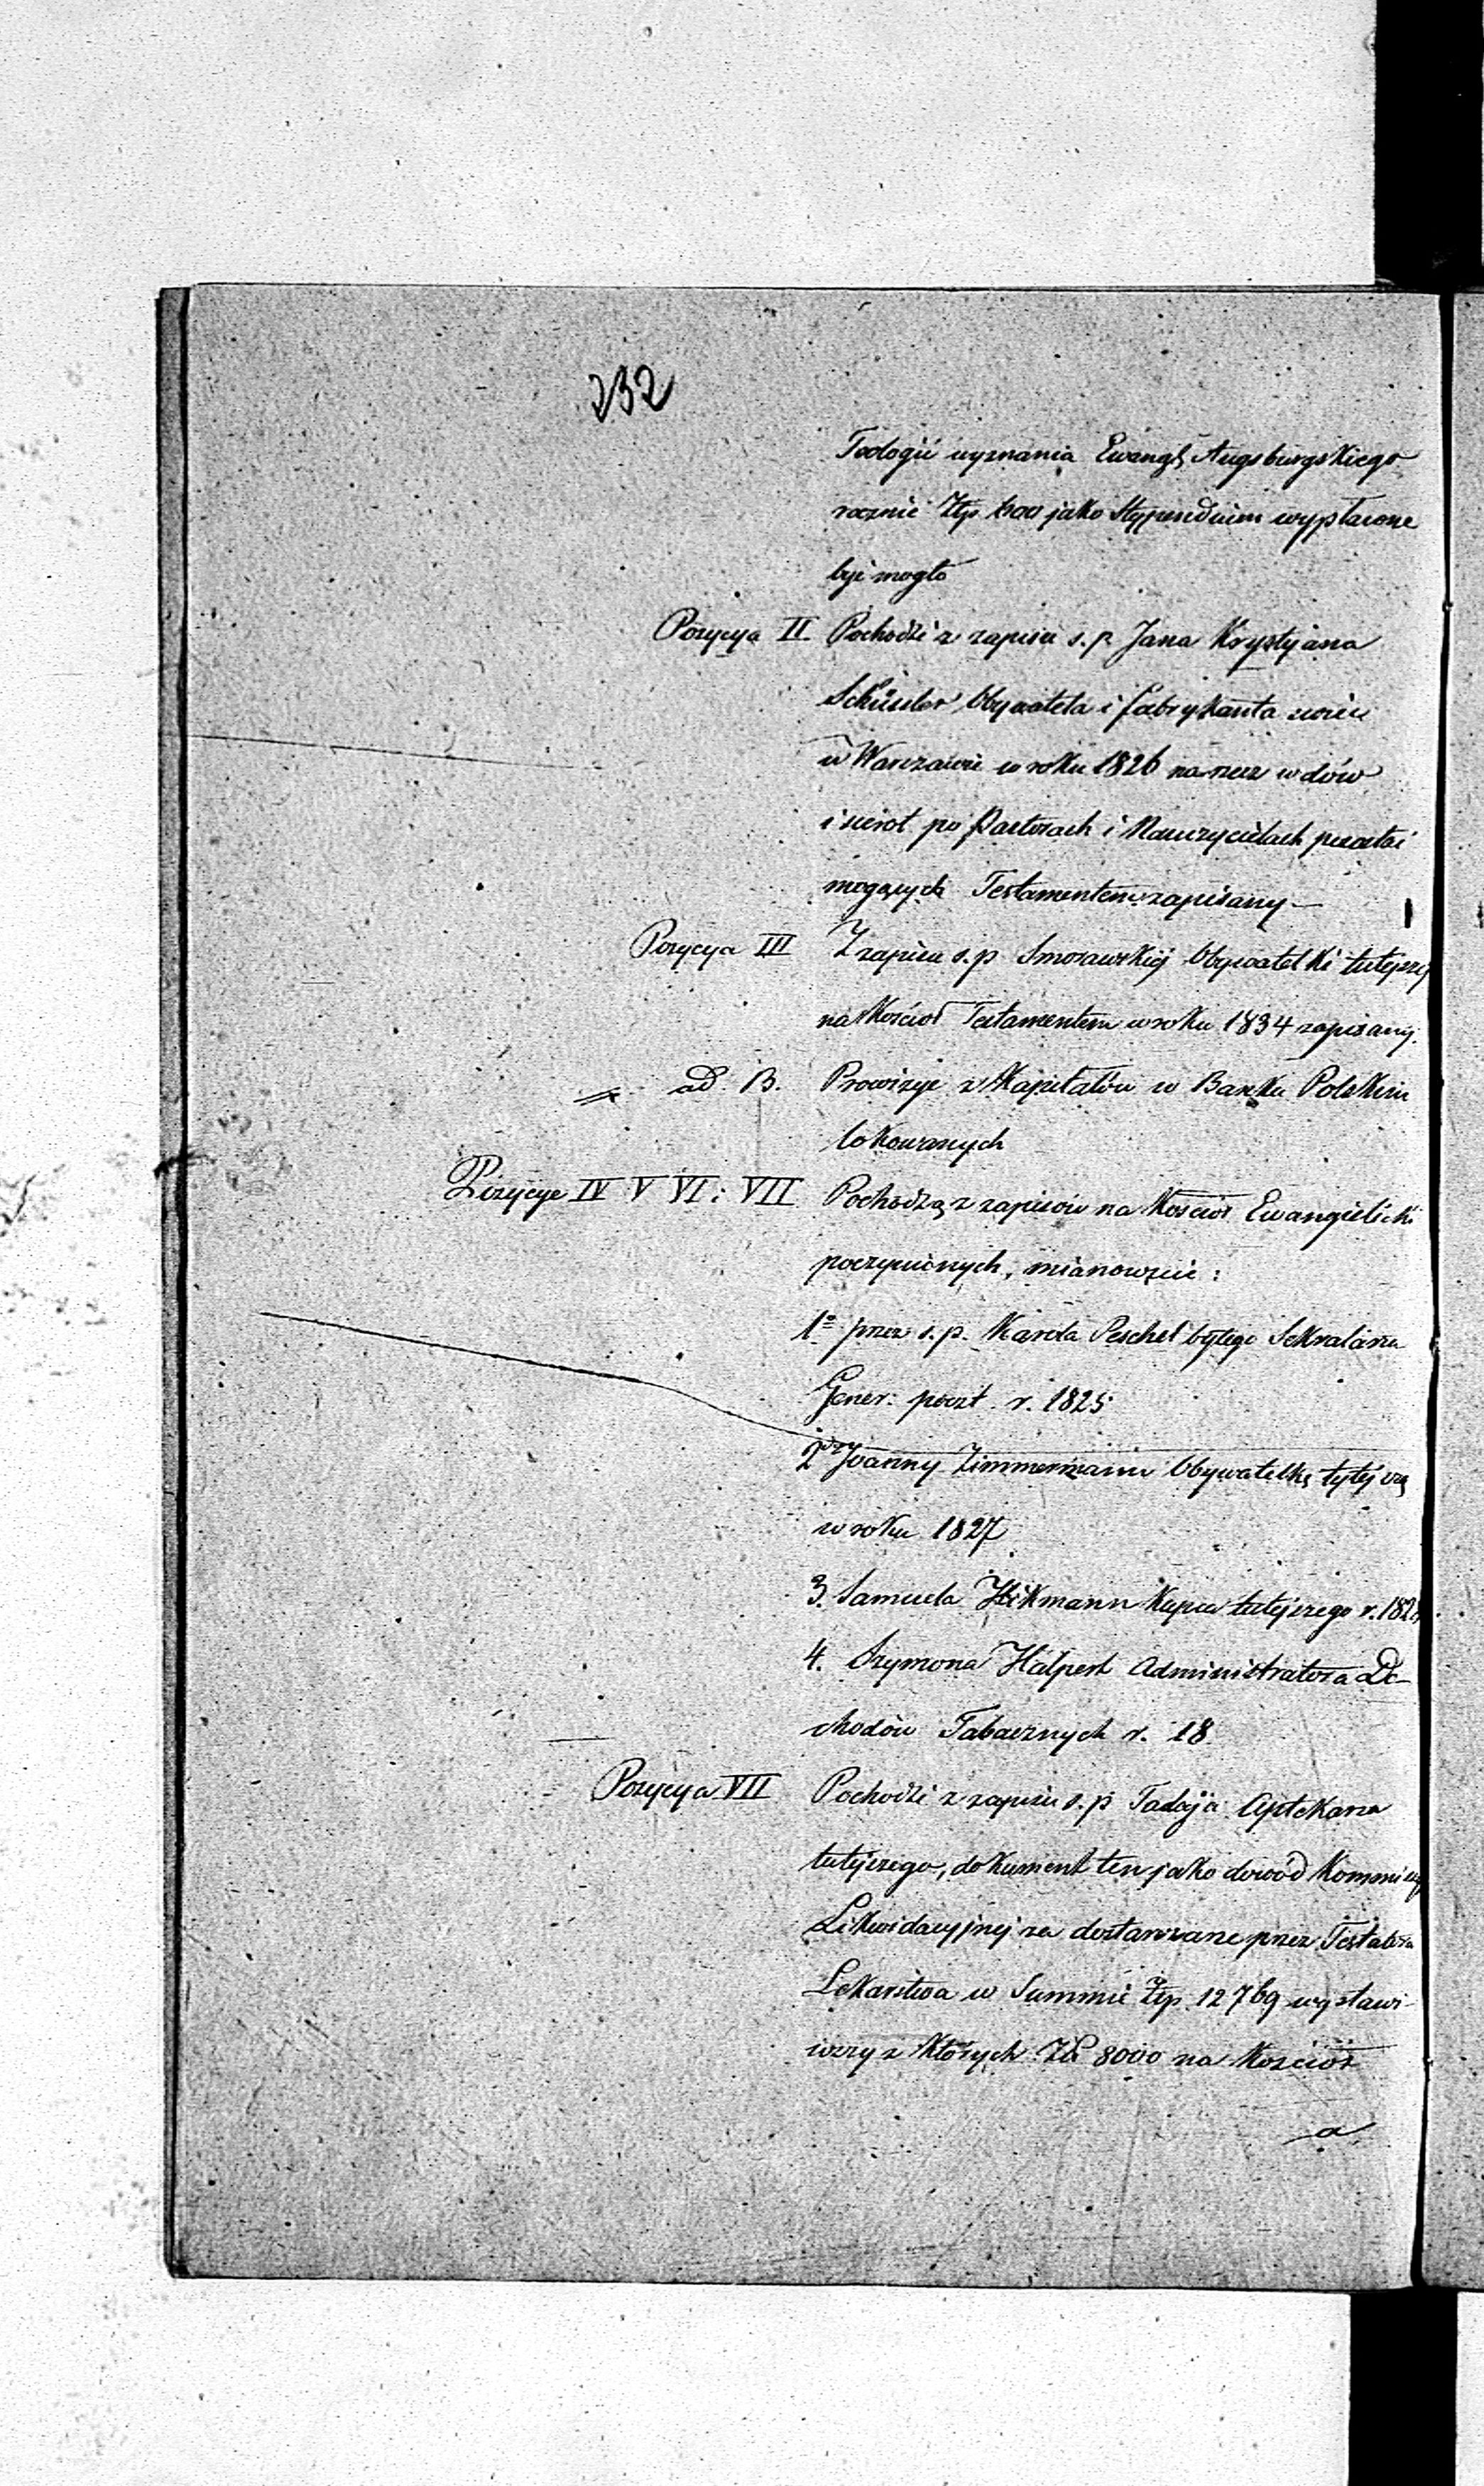 232
Teologii wyznania Ewang. Augsburgskiego
rocznie Złp. 600 jako Stypendium wypłacone
być mogło
Pozycya II Pochodzi z zapisu s. p. Jana Krystyjana
Obywatela i fabrykanta
w Warszawie w roku 1826 na rzecz wdów
i sierot po Pastorach i Nauczycielach pozostać
mogących Testamentem zapisany —
Pozycya III Z zapisu s. p. Smorawskiéj Obywatelki tutejszej
na Kościoł Testamentem w roku 1834 zapisany.
ad. B. Prowizye z Kapitałów w Banku Polskim
lokowanych
Pozycye IV V VI i VII Pochodzą z zapisów na Kościoł Ewangielicki
poczynionych, mianowicie:
1º przez s. p. Karola Peschel byłego Sekretarza
Gener: poczt. r. 1825
2 Joanny Zimmermann Obywatelkę
w roku 1827
3. Samuela Kupca tutejszego r.
4. Szymona Halpert Administratora Do-
chodów Tabacznych r. 18
Pozycya VII Pochodzi z zapisu s. p. Aptekarza
tutejszego, dokument ten jako dowód Kommissyi
Likwidacyjnej za dostarczane przez Testatora
Lekarstwa w Summie Złp. 12769 wystawi-
wszy z których Zł 8000 na Kościoł
a